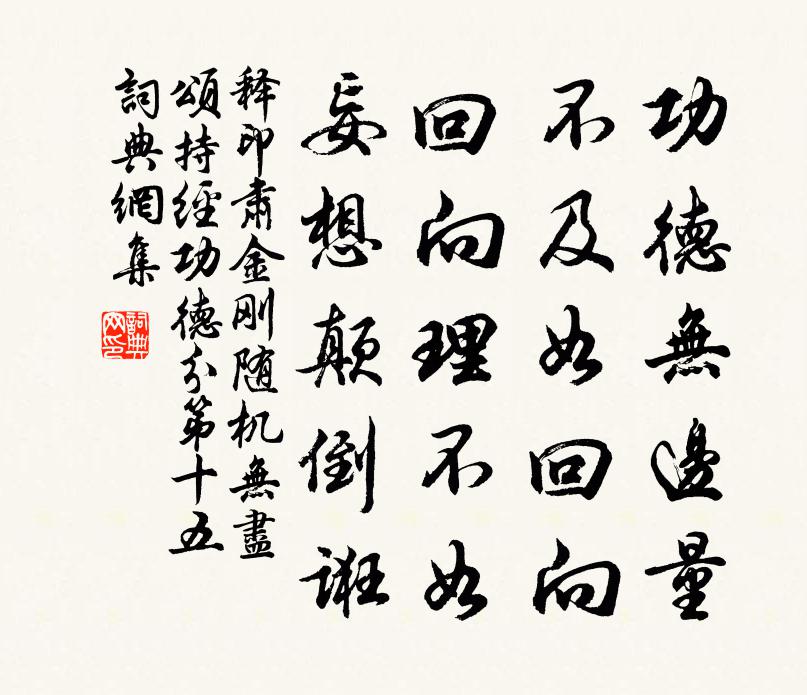 功德無邊量
不及如回向
回向理不如
妄想顛倒誑
释印肃金刚随机無盡
頌持經功德分第十五
詞典網集
詞典网印